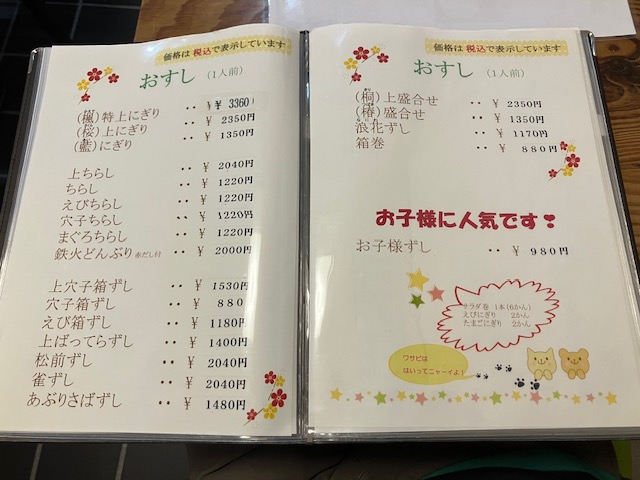 価格は 税込で表示しています
おすし （1人前）
（楓）特上にぎり ‥ ¥ 3360
（桜）上にぎり ‥ ¥ 2350円
（藍）にぎり ‥ ¥ 1350円
上ちらし ‥ ¥ 2040円
ちらし ‥ ¥ 1220円
えびちらし ‥ ¥ 1220円
穴子ちらし ‥ ¥ 1220円
まぐろちらし ‥ ¥ 1220円
鉄火どんぶり 赤だし付 ‥ ¥ 2000円
上穴子箱ずし ‥ ¥ 1530円
穴子箱ずし ‥ ¥ 880円
えび箱ずし ‥ ¥ 1180円
上ばってらずし ‥ ¥ 1400円
松前ずし ‥ ¥ 2040円
雀ずし ‥ ¥ 2040円
あぶりさばずし ‥ ¥ 1480円
価格は 税込で表示しています
おすし （1人前）
（桐）上盛合せ ‥ ¥ 2350円
（椿）盛合せ ‥ ¥ 1350円
浪花ずし ‥ ¥ 1170円
箱巻 ‥ ¥ 880円
お子様に人気です❣
お子様ずし ‥ ¥ 980円
サラダ巻 1本（6かん）
えびにぎり 2かん
たまごにぎり 2かん
ワサビは
はいってニャーイよ！